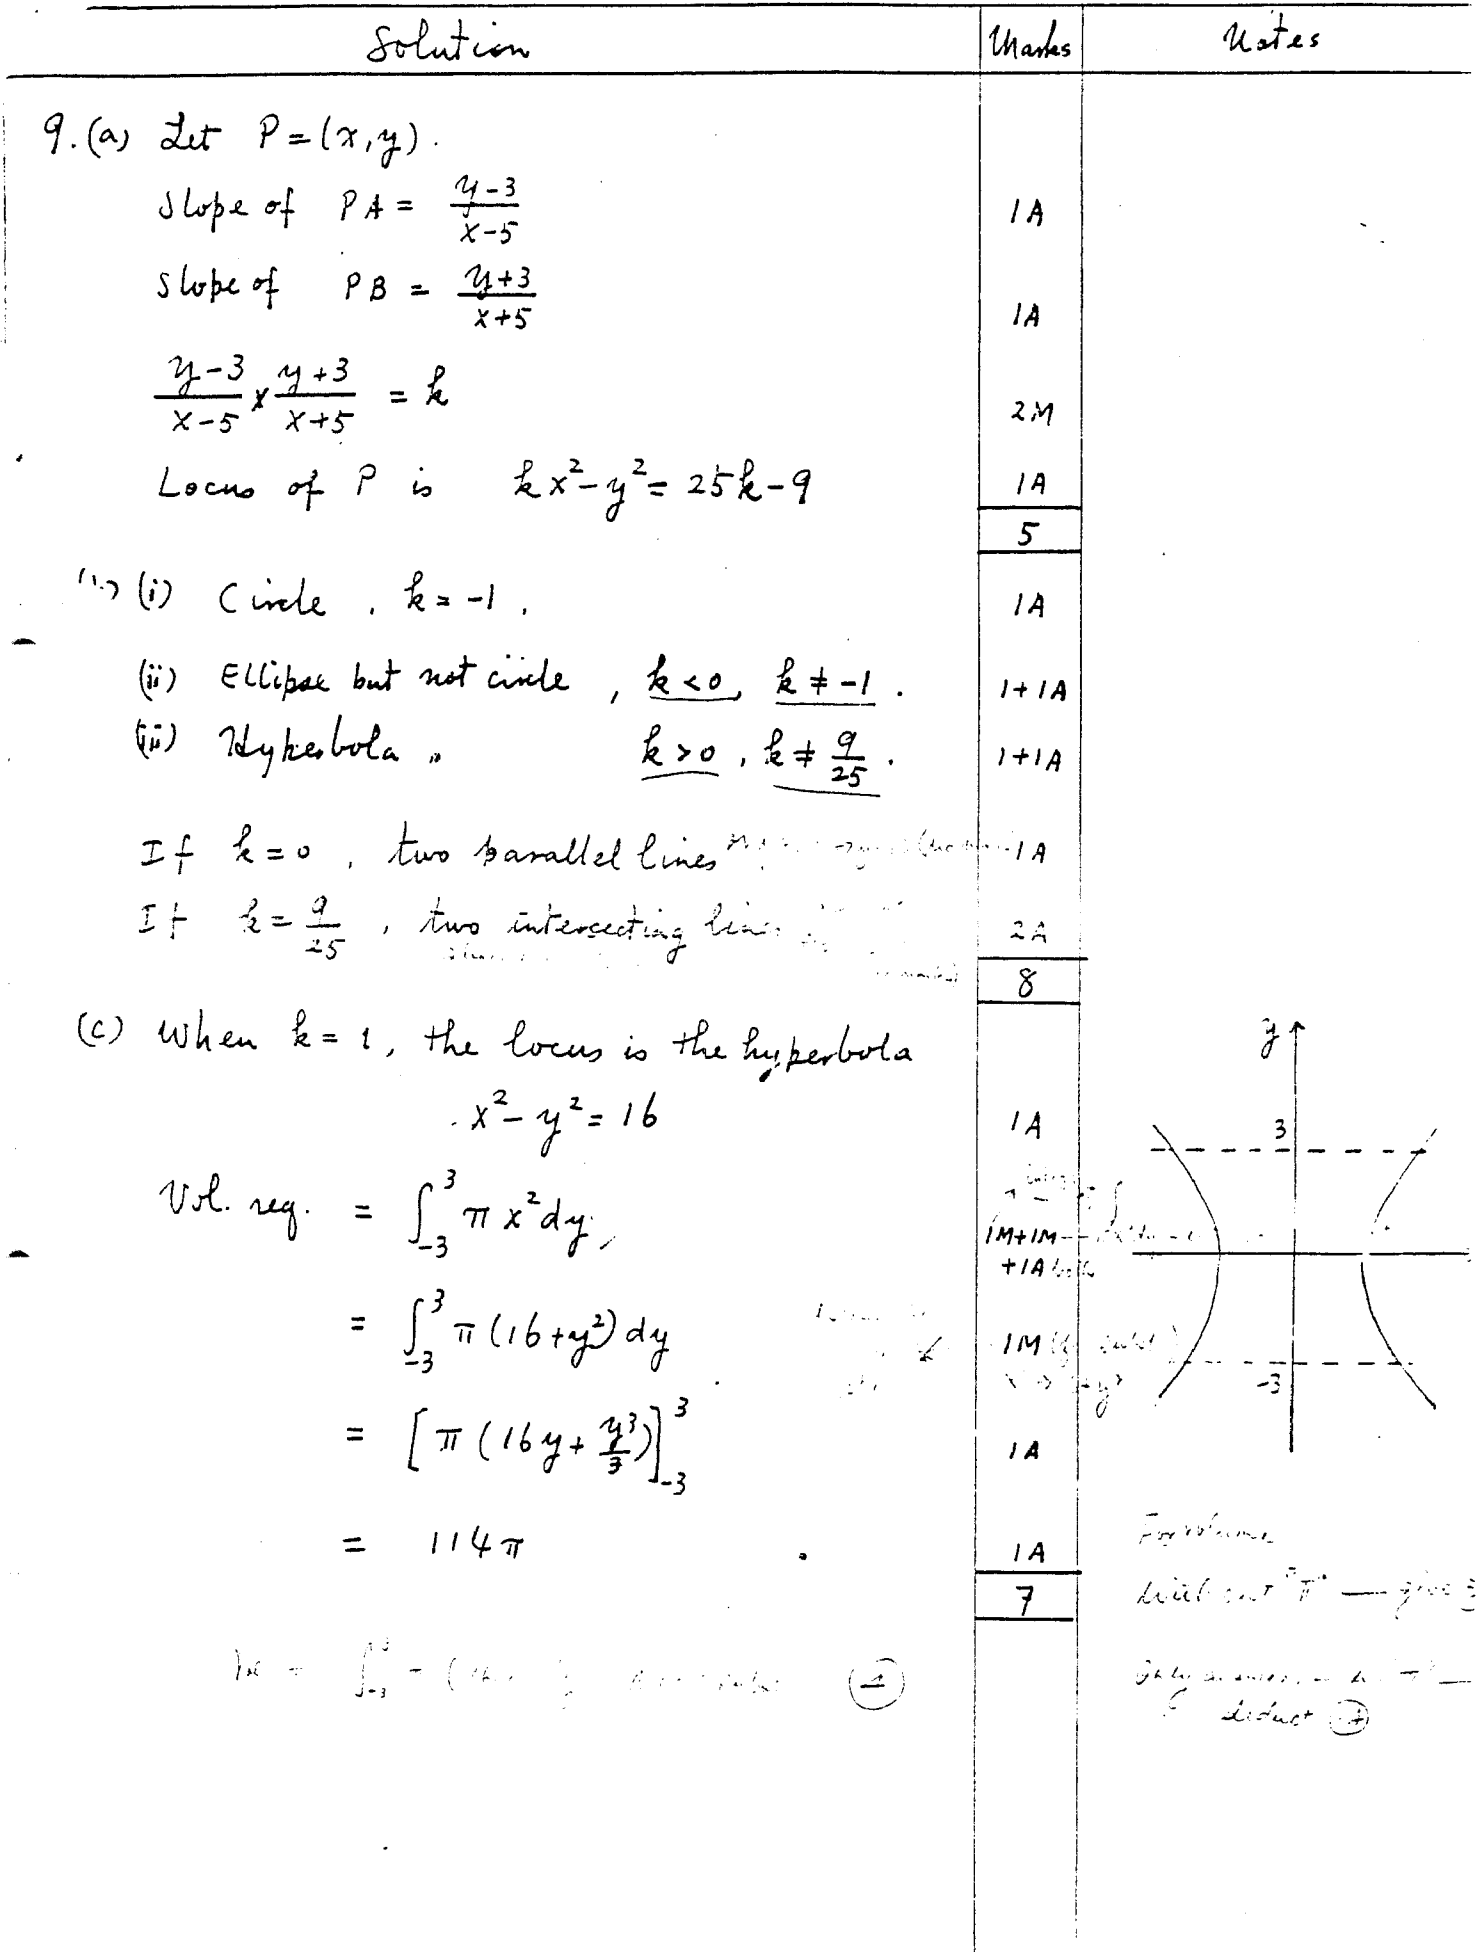 Solution Marks Notes
9. (a) Let P = (x, y).
Slope of PA = (y-3)/(x-5) 1A
Slope of PB = (y+3)/(x+5) 1A
(y-3)/(x-5) × (y+3)/(x+5) = k 2M
Locus of P is kx² - y² = 25k - 9 1A
5
(i) Circle, k = -1, 1A
(ii) Ellipse but not circle, k < 0, k ≠ -1. 1+1A
(iii) Hyperbola, k > 0, k ≠ 9/25. 1+1A
If k = 0, two parallel lines 1A
If k = 9/25, two intersecting lines 2A
8
(c) When k = 1, the locus is the hyperbola
x² - y² = 16 1A
Vol. req. = ∫₋₃³ π x² dy, 1M+1M
+1A
= ∫₋₃³ π (16 + y²) dy 1M
= [π (16y + y³/3)]₋₃³ 1A
= 114π 1A
7
y
3
-3
For volume
without "π" — give
deduct